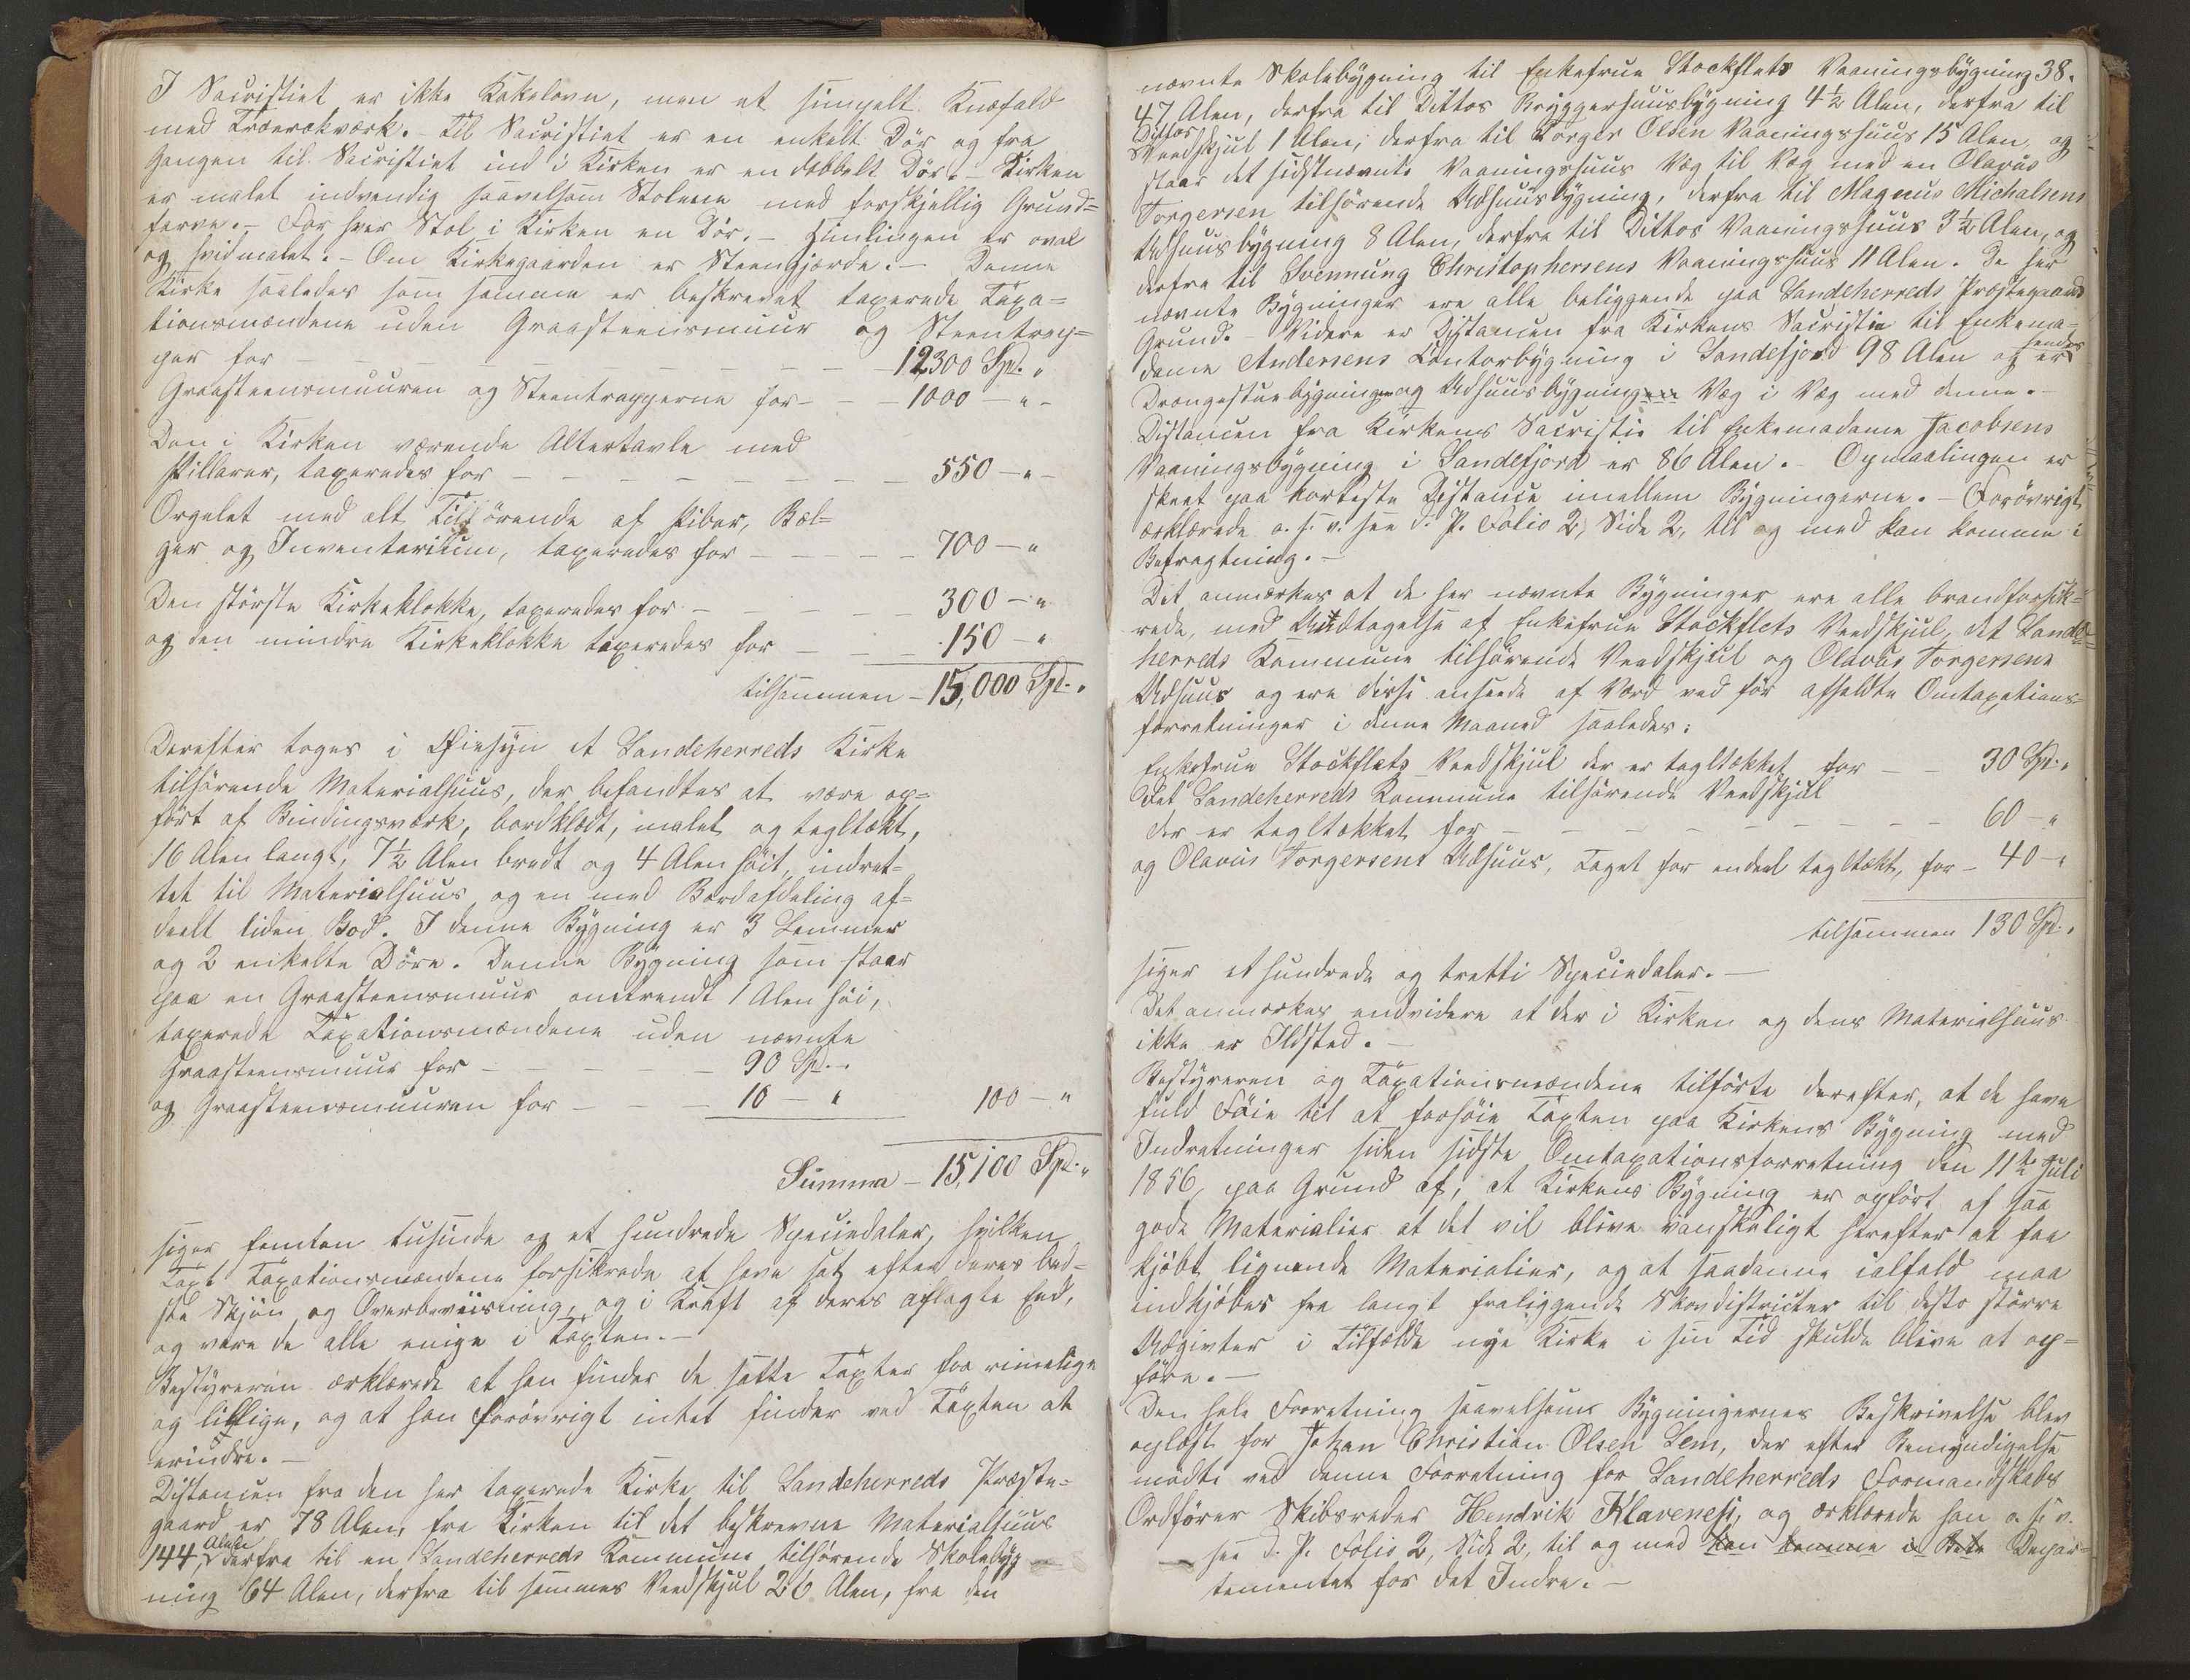 I Sacristiet er ikke Kakelovn, men et simpelt Knæfald
med Træerækværk. – Til Sacristiet er en enkelt Dör og fra
Gangen til Sacristiet ind i Kirken er en dobbelt Dör. – Kirken
er malet indvendig saavelsom Stolene med forskjellig Grund=
farve. – For hver Stol i Kirken en Dör. – Himlingen er oval
og hvidmalet. – Om Kirkegaarden er Steengjærde. – Denne
Kirke saaledes som samme er beskrevet taxerede Taxa=
tionsmændene uden Graasteensmuur og Steentrap=
per for – – – – – – – 12300 Spd. "
Graasteensmuuren og Steentrapperne for – – – 1000 – " –
Den i Kirken værende Altertavle med
Pillarer, taxeredes for – – – – – – – 550 – " –
Orgelet med alt Tilhörende af Piber, Bæl=
ger og Inventarium, taxeredes for – – – – 700 – "
Den störste Kirkeklokke, taxeredes for – – – – 300 – "
og den mindre Kirkeklokke taxeredes for – – – 150 – "
tilsammen – 15,000 Spd. "
Derefter toges i Öiesyn et Sandeherreds Kirke
tilhörende Materialhuus, der befandtes at være op=
fört af Bindingsværk, bordklædt, malet og tegltækt,
16 Alen langt, 7½ Alen bredt og 4 Alen höit, indret=
tet til Materialhuus og en med Bordafdeling af=
deelt liden Bod. I denne Bygning er 3 Lemmer
og 2 enkelte Döre. Denne Bygning som staar
paa en Graasteensmuur omtrendt 1 Alen höi,
taxerede Taxationsmændene uden nævnte
Graasteensmuur for – – – – – 90 Spd. "
og Graasteensmuuren for – – – 10 – " 100 – "
Summa – 15,100 Spd. "
siger femten tusinde og et hundrede Speciedaler, hvilken
Taxt Taxationsmændene forsikrede at have sat efter deres bed=
ste Skjön og Overbeviisning, og i Kraft af deres aflagte Eed,
og vare de alle enige i Taxten. –
Bestyreren erklærede at han finder de satte Taxter for rimelige
og billige, og at han forövrigt intet finder ved Taxten at
erindre. –
Distancen fra den her taxerede Kirke til Sandeherreds Præste=
gaard er 78 Alen, fra Kirken til det beskrevne Materialhuus
144 Alen, derfra til en Sandeherreds Kommune tilhörende Skolebyg=
ning 64 Alen, derfra til sammes Vedskjul 26 Alen, fra den
38.
nævnte Skolebygning til Enkefrue Stockflets Vaaningsbygning
47 Alen, derfra til Dittos Bryggerhuusbygning 4½ Alen, derfra til
Dittos
Veedskjul 1 Alen; derfra til Törger Olsen Vaaningshuus 15 Alen, og
staar det sidstnævnte Vaaningshuus Væg til Væg med en Olavus
Torgersen tilhörende Udhuusbygning, derfra til Magnus Michalsens
Udhuusbygning 8 Alen, derfra til Dittos Vaaningshuus 3½ Alen, og
derfra til Svennung Christophersens Vaaningshuus 11 Alen. De her
nævnte Bygninger ere alle beliggende paa Sandeherreds Præstegaards
Grund. – Videre er Distancen fra Kirkens Sacristie til Enkema=
dame Andersens Contorbygning i Sandefjord 98 Alen og er sendes
Drengestuebygningen og Udhuusbygningen Væg i Væg med denne. –
Distancen fra Kirkens Sacristie til Enkemadame Jacobsens
Vaaningsbygning i Sandefjord er 86 Alen. – Opmaalingen er
skeet paa korteste Distance imellem Bygningerne. – Forövrigt
erklærede o. s. v. see d. P. Folio 2, Side 2, til og med kan komme i
Betragtning. –
Det anmærkes at de her nævnte Bygninger ere alle brandforsik=
rede, med Undtagelse af Enkefrue Stockflets Veedskjul, det Sande=
herreds Kommune tilhörende Veedskjul og Olavus Torgersens
Udhuus og ere disse anseede af Værd ved för afholdte Omtaxations=
forretninger i denne Maaned saaledes:
Enkefrue Stockflets Veedskjul der er tegltækket for – – 30 Spd. "
Det Sandeherreds Kommune tilhörende Veedskjul
der er tegltækket for – – – – – – – – 60 – "
og Olavus Torgersens Udhuus, taget for endeel tegltækt, for – 40 – "
tilsammen 130 Spd. "
siger et hundrede og tretti Speciedaler. –
Det anmærkes endvidere at der i Kirken og dens Materialhuus
ikke er Ildsted. –
Bestyreren og Taxationsmændene tilförte derefter, at de have
fuld Föie til at forhöie Taxten paa Kirkens Bygning med
Indretninger siden sidste Omtaxationsforretning den 11te Juli
1856, paa Grund af, at Kirkens Bygning er opfört af saa
gode Materialier at det vil blive vanskeligt herefter at faa
kjöbt lignende Materialier, og at saadanne ialfald maa
indkjöbes fra langt fraliggende Skovdistricter til desto större
Udgivter i Tilfælde nye Kirke i sin Tid skulde blive at op=
före. –
Den hele Forretning saavelsom Bygningernes Beskrivelse blev
oplæst for Johan Christian Olsen Lem, der efter Bemyndigelse
mödte ved denne Forretning for Sandeherreds Formandskabs
Ordförer Skibsreder Hendrik Klavenesi, og erklærede han o. s. v.
see d. P. Folio 2, Side 2, til og med kan komme i Betr Depar=
tementet for det Indre. –